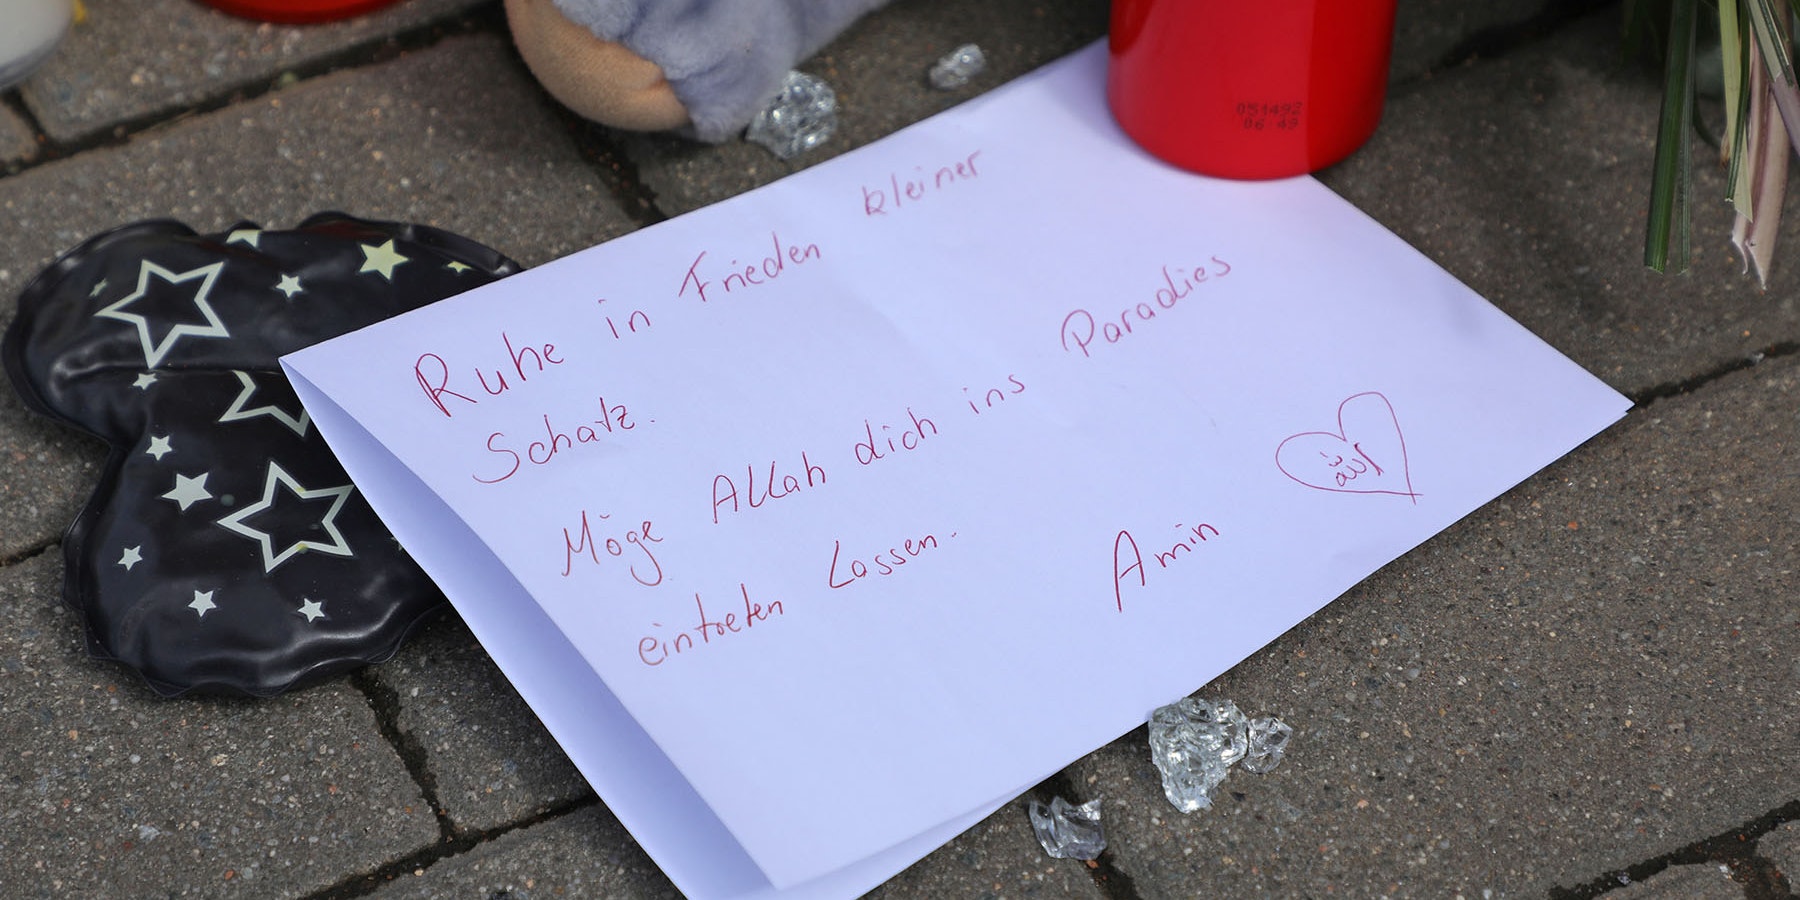 Ruhe in Frieden kleiner
Schatz.
Möge Allah dich ins Paradies
eintreten Lassen.
Amin
051492
06 49